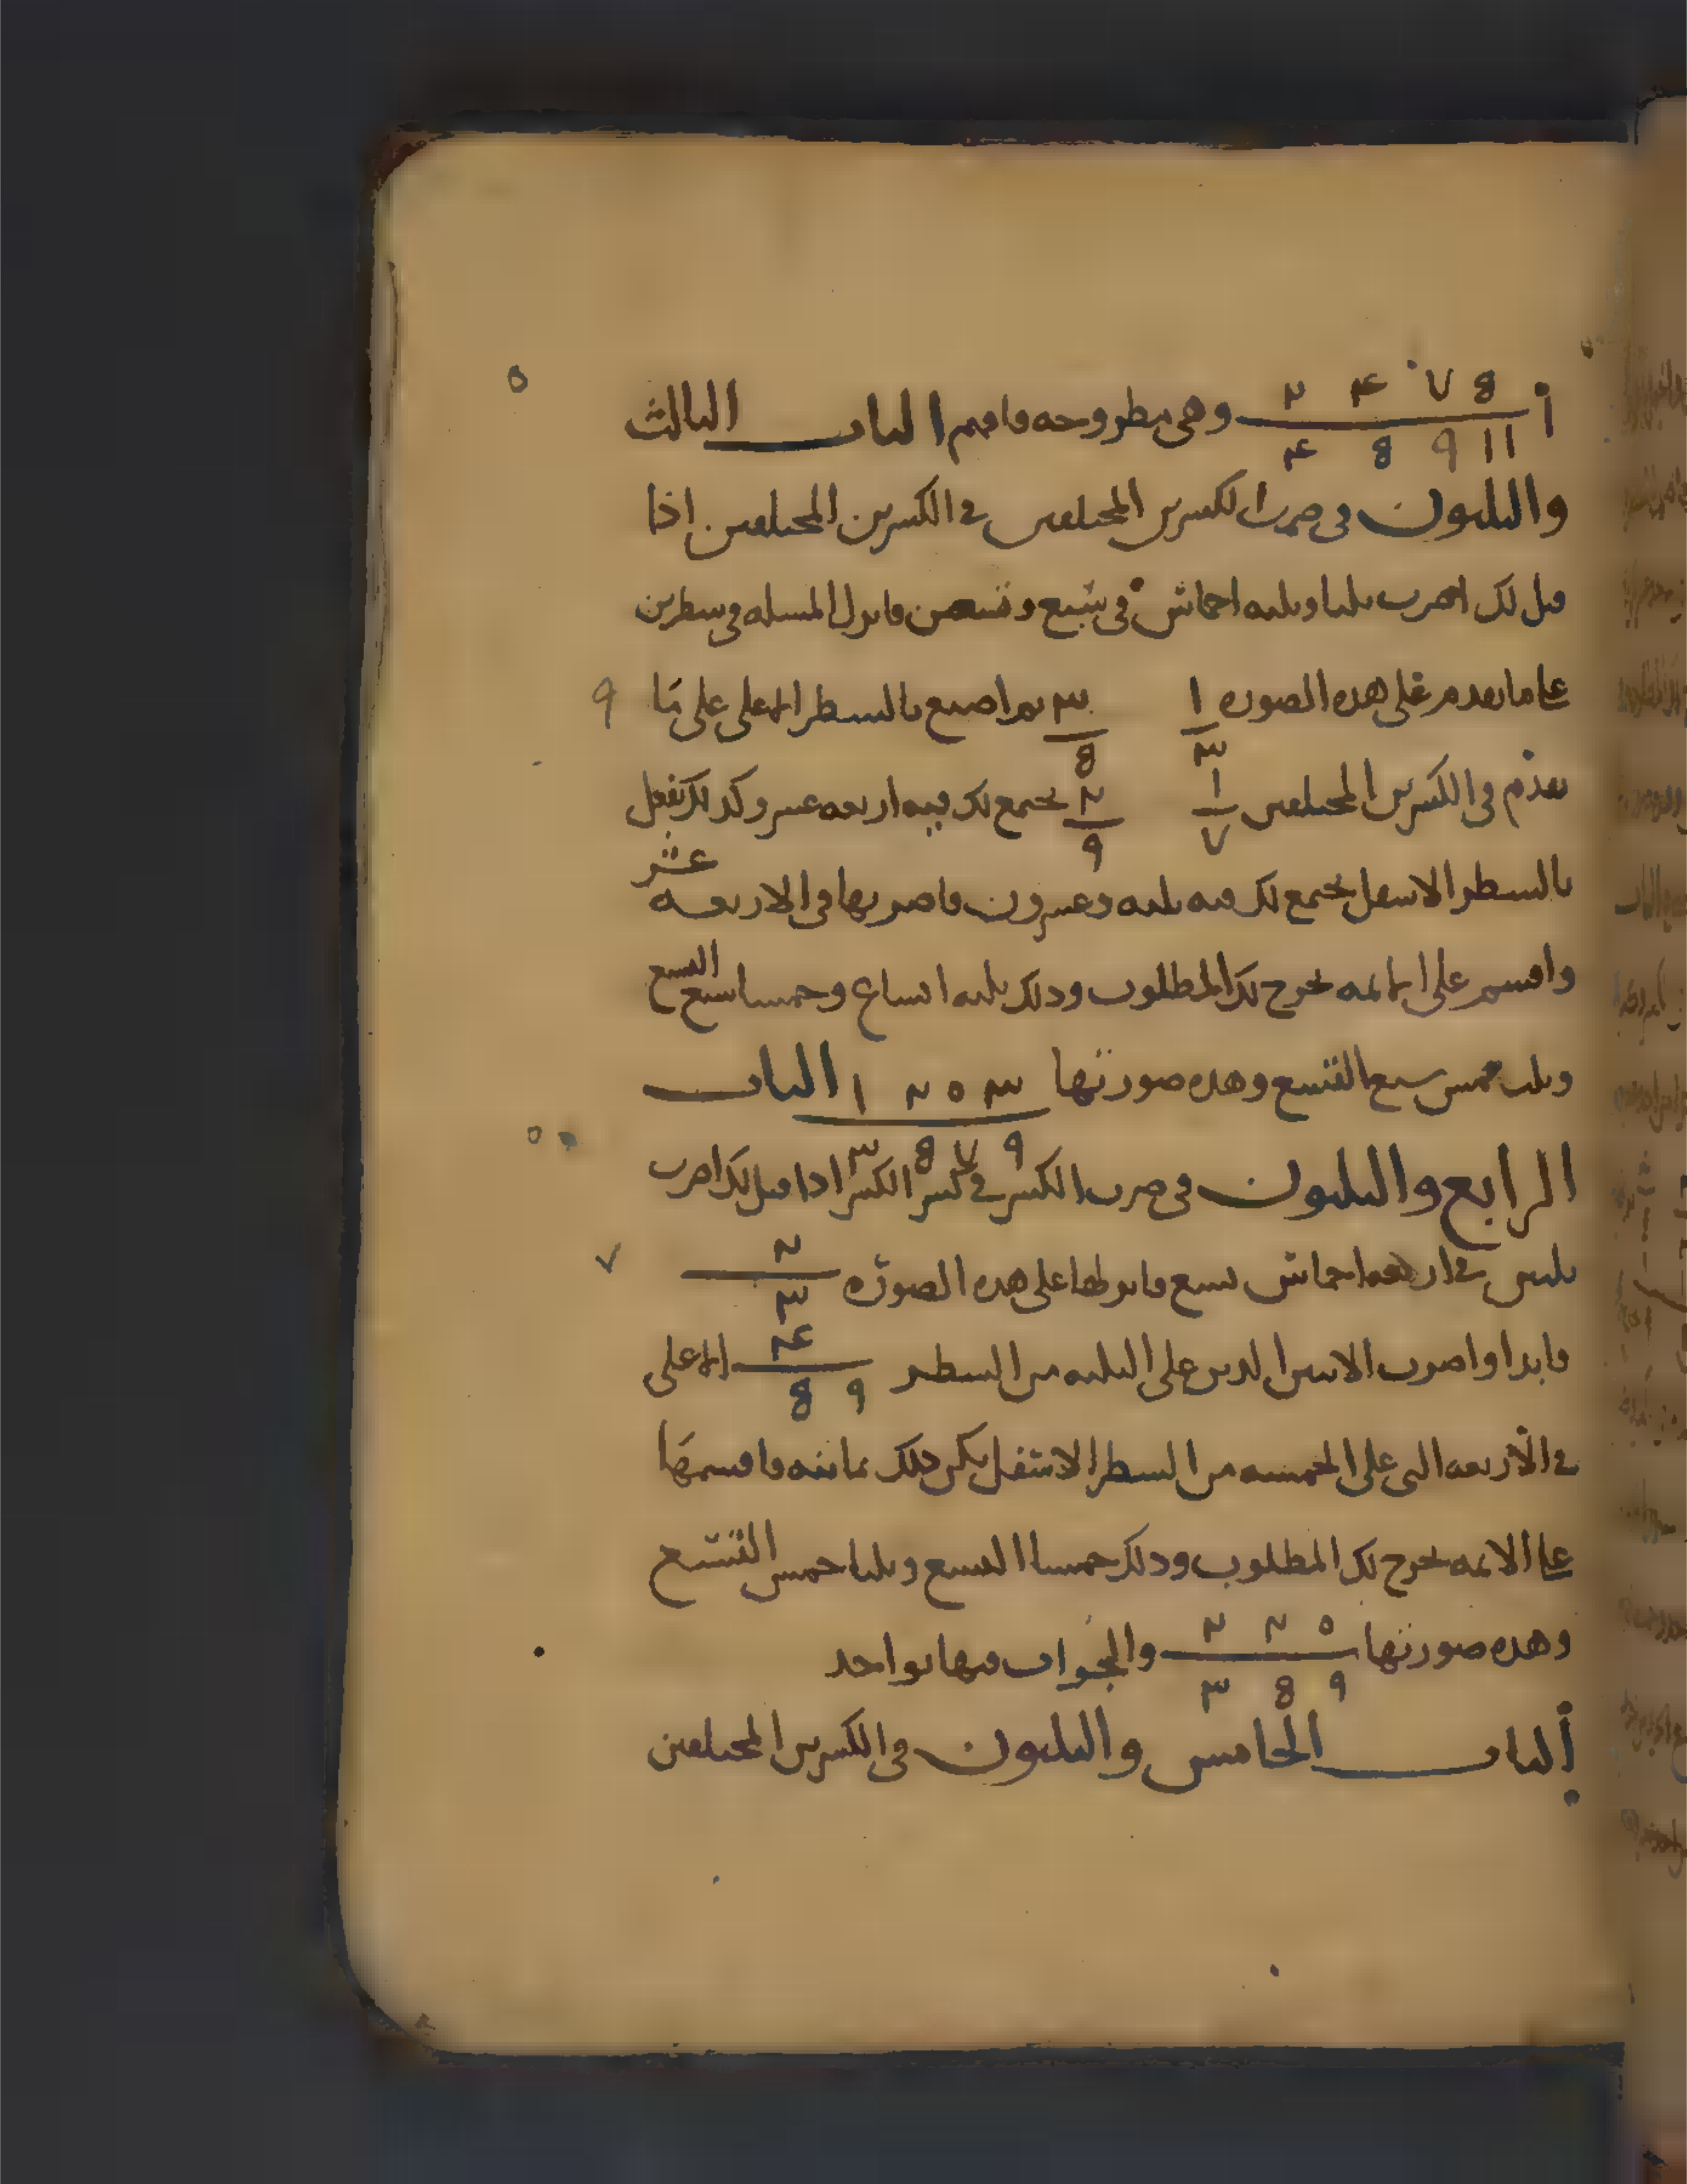 أ ٢ ٤ ٧ 8 وهى مطروحه فافهم الباب الثالث
٤ 8 ٩ ١١
والثلثون فى ضرب الكسرين المختلفين فى الكسرين المختلفين اذا
قيل لك اضرب ثلثا وثلثه اخماس فى سبع وتسعين فانزل المسله فى سطرين
على ما تقدم على هذه الصوره ١ ٣ ثم اصنع بالسطر الاعلى على ما ٩
٣ 8
تقدم فى الكسرين المختلفين ١ ٢ يجتمع لك فيه اربعه عشر وكذلك تفعل
٧ ٩
بالسطر الاسفل يجتمع لك فيه ثلثه وعشرون فاضربها فى الاربعه عشر
واقسم على ايمائمه يخرج لك المطلوب وذلك ثلثه اتساع وخمسا سبع التسع
وثلث خمس سبع التسع وهذه صورتها ١ ٢ ٥ ٣ الباب
٣ 8 ٧ ٩
الرابع والثلثون فى ضرب الكسر فى كسر الكسر اذا قيل لك اضرب
ثلثين فى اربعه اخماس تسع فانزلها على هذه الصوره ٢ ٧
٣
فابدا واضرب الاثنين الذين على الثلثه من السطر ٤ الاعلى
8 ٩
فى الاربعه التى على الخمسه من السطر الاسفل يكن ذلك ثمانيه فاقسمها
على الائمه يخرج لك المطلوب وذلك خمسا التسع وثلثا خمس التسع
وهذه صورتها ٢ ٢ ٥ والجواب فيها بواحد
٣ 8 ٩
الباب الخامس والثلثون فى الكسرين المختلفين